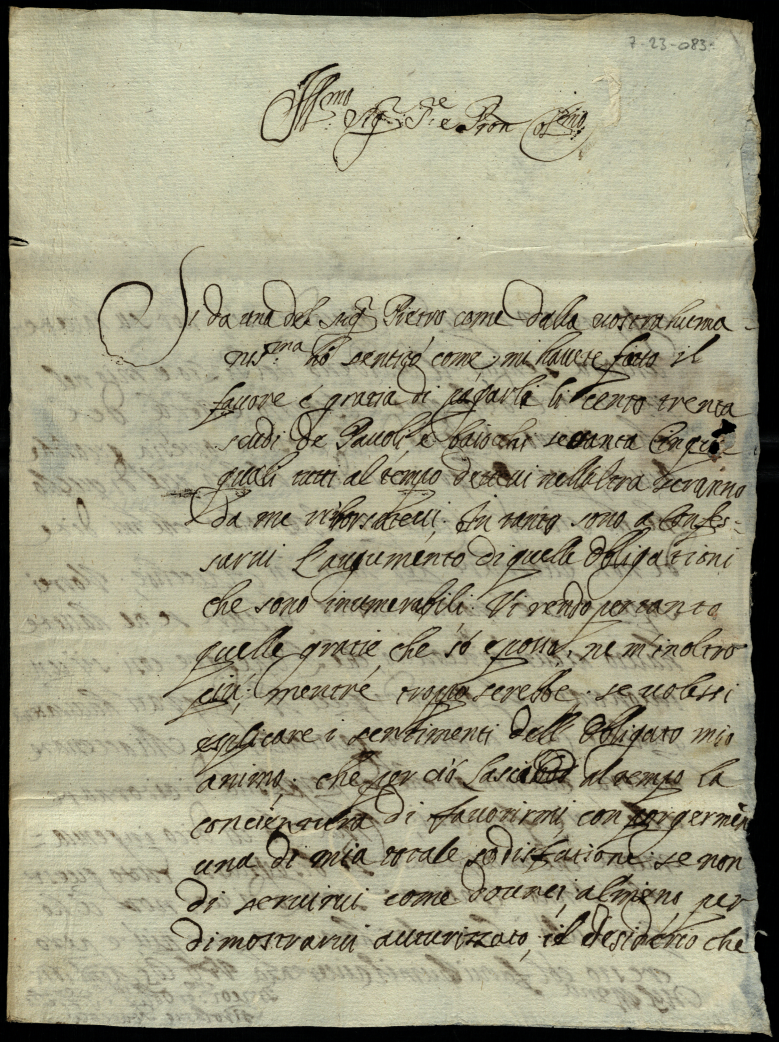 7-23-083
Ill.mo Sig.r S.re e Pron Coll.mo
Si da una del Sig.r Pietro come dalla vostra huma-
nis.ma hò sentito come mi havete fatto il
favore e gratia di pagarli li cento trenta
scudi de Pauoli e baiochi settanta Cinq;
quali tutti al tempo dettoui nell'altra seranno
da me riborsateui. In tanto sono a Confes=
sarui l'augumento di quelle Obligationi
che sono inumerabili. Vi rendo per tanto
quelle gratie che sò e posso, ne m'inoltro
più, mentre troppo serebbe se volessi
esplicare i sentimenti dell' Obligato mio
animo, che per ciò al tempo la
di favorirmi con porgermen
una di mia totale sodisfatione, se non
di seruirui come dourei, almeno per
dimostrarui auturizzato, il desiderio che